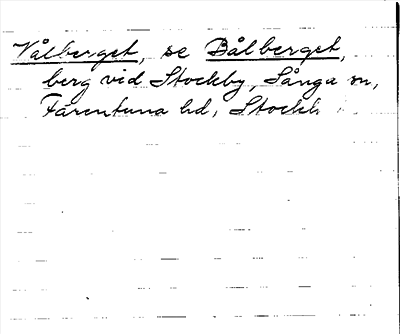 Vålberget, se Bålberget,
berg vid Stockby, Sånga sn,
Färentuna hd, Stockh